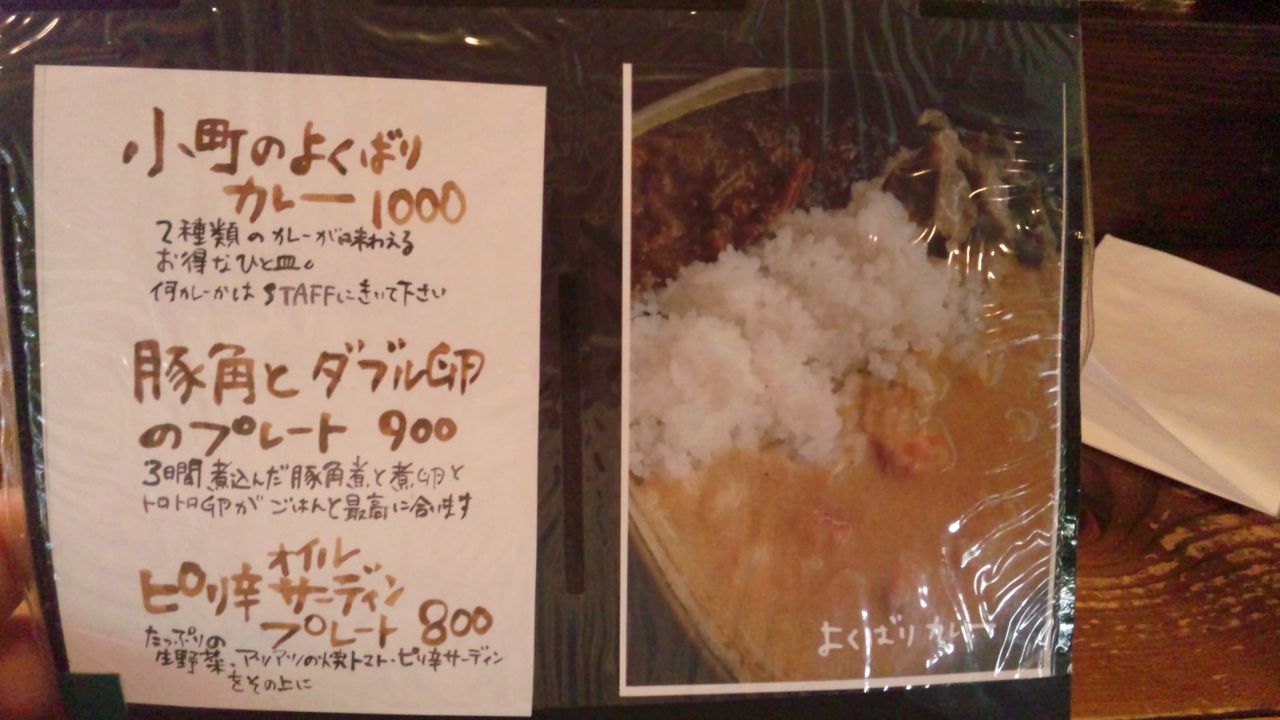 小町のよくばり
カレー 1000
2種類のカレーが味わえる
お得なひと皿。
何カレーかは STAFFにきいて下さい
豚角とダブル卵
のプレート 900
3日間煮込んだ豚角煮と煮卵と
トロトロ卵がごはんと最高に合います
ピリ辛オイルサーディン
プレート 800
たっぷりの
生野菜、アツアツの焼トマト・ピリ辛サーディン
をその上に
よくばりカレー